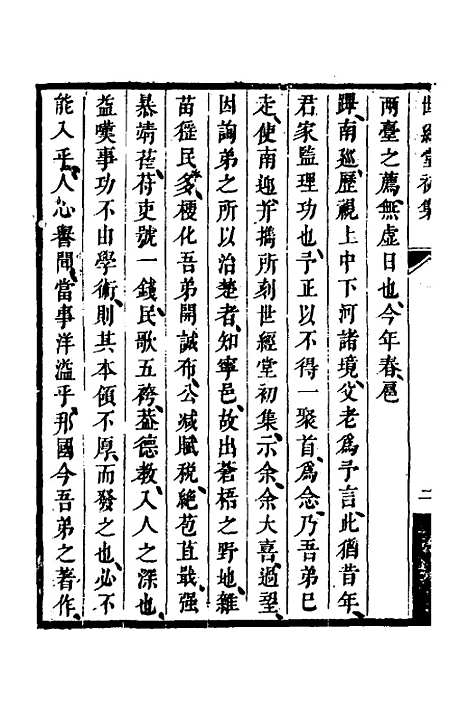 世經堂初集
二
兩臺之薦無虛日也今年春扈
蹕南廵歷視上中下河諸境父老為予言此猶昔年
君家監理功也予正以不得一聚首為念乃吾弟已
走使南迎并攜所刻世經堂初集示余余大喜過望
因詢弟之所以治楚者知寧邑故出蒼梧之野地雜
苗猺民多梗化吾弟開誠布公减賦税絶苞苴戢强
暴靖萑苻吏號一錢民歌五袴葢德教入人之深也
益嘆事功不由學術則其本領不厚而發之也必不
能入乎人心譽聞當事洋溢乎那國今吾弟之著作